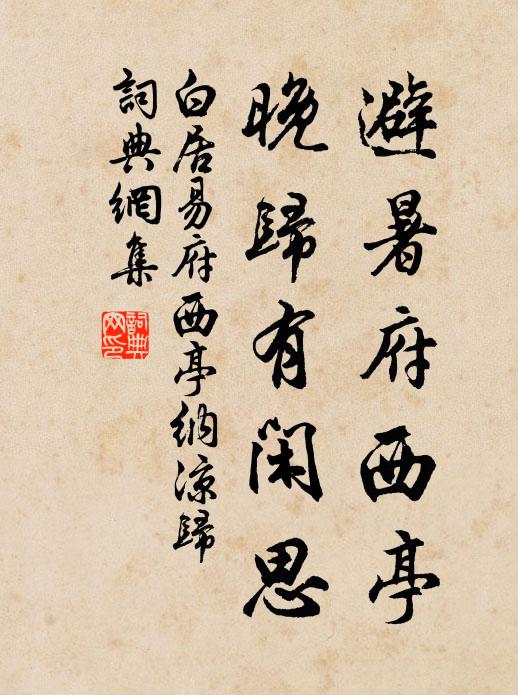 避暑府西亭
晚歸有閑思
白居易府西亭納涼歸
詞典網集
詞典
网印